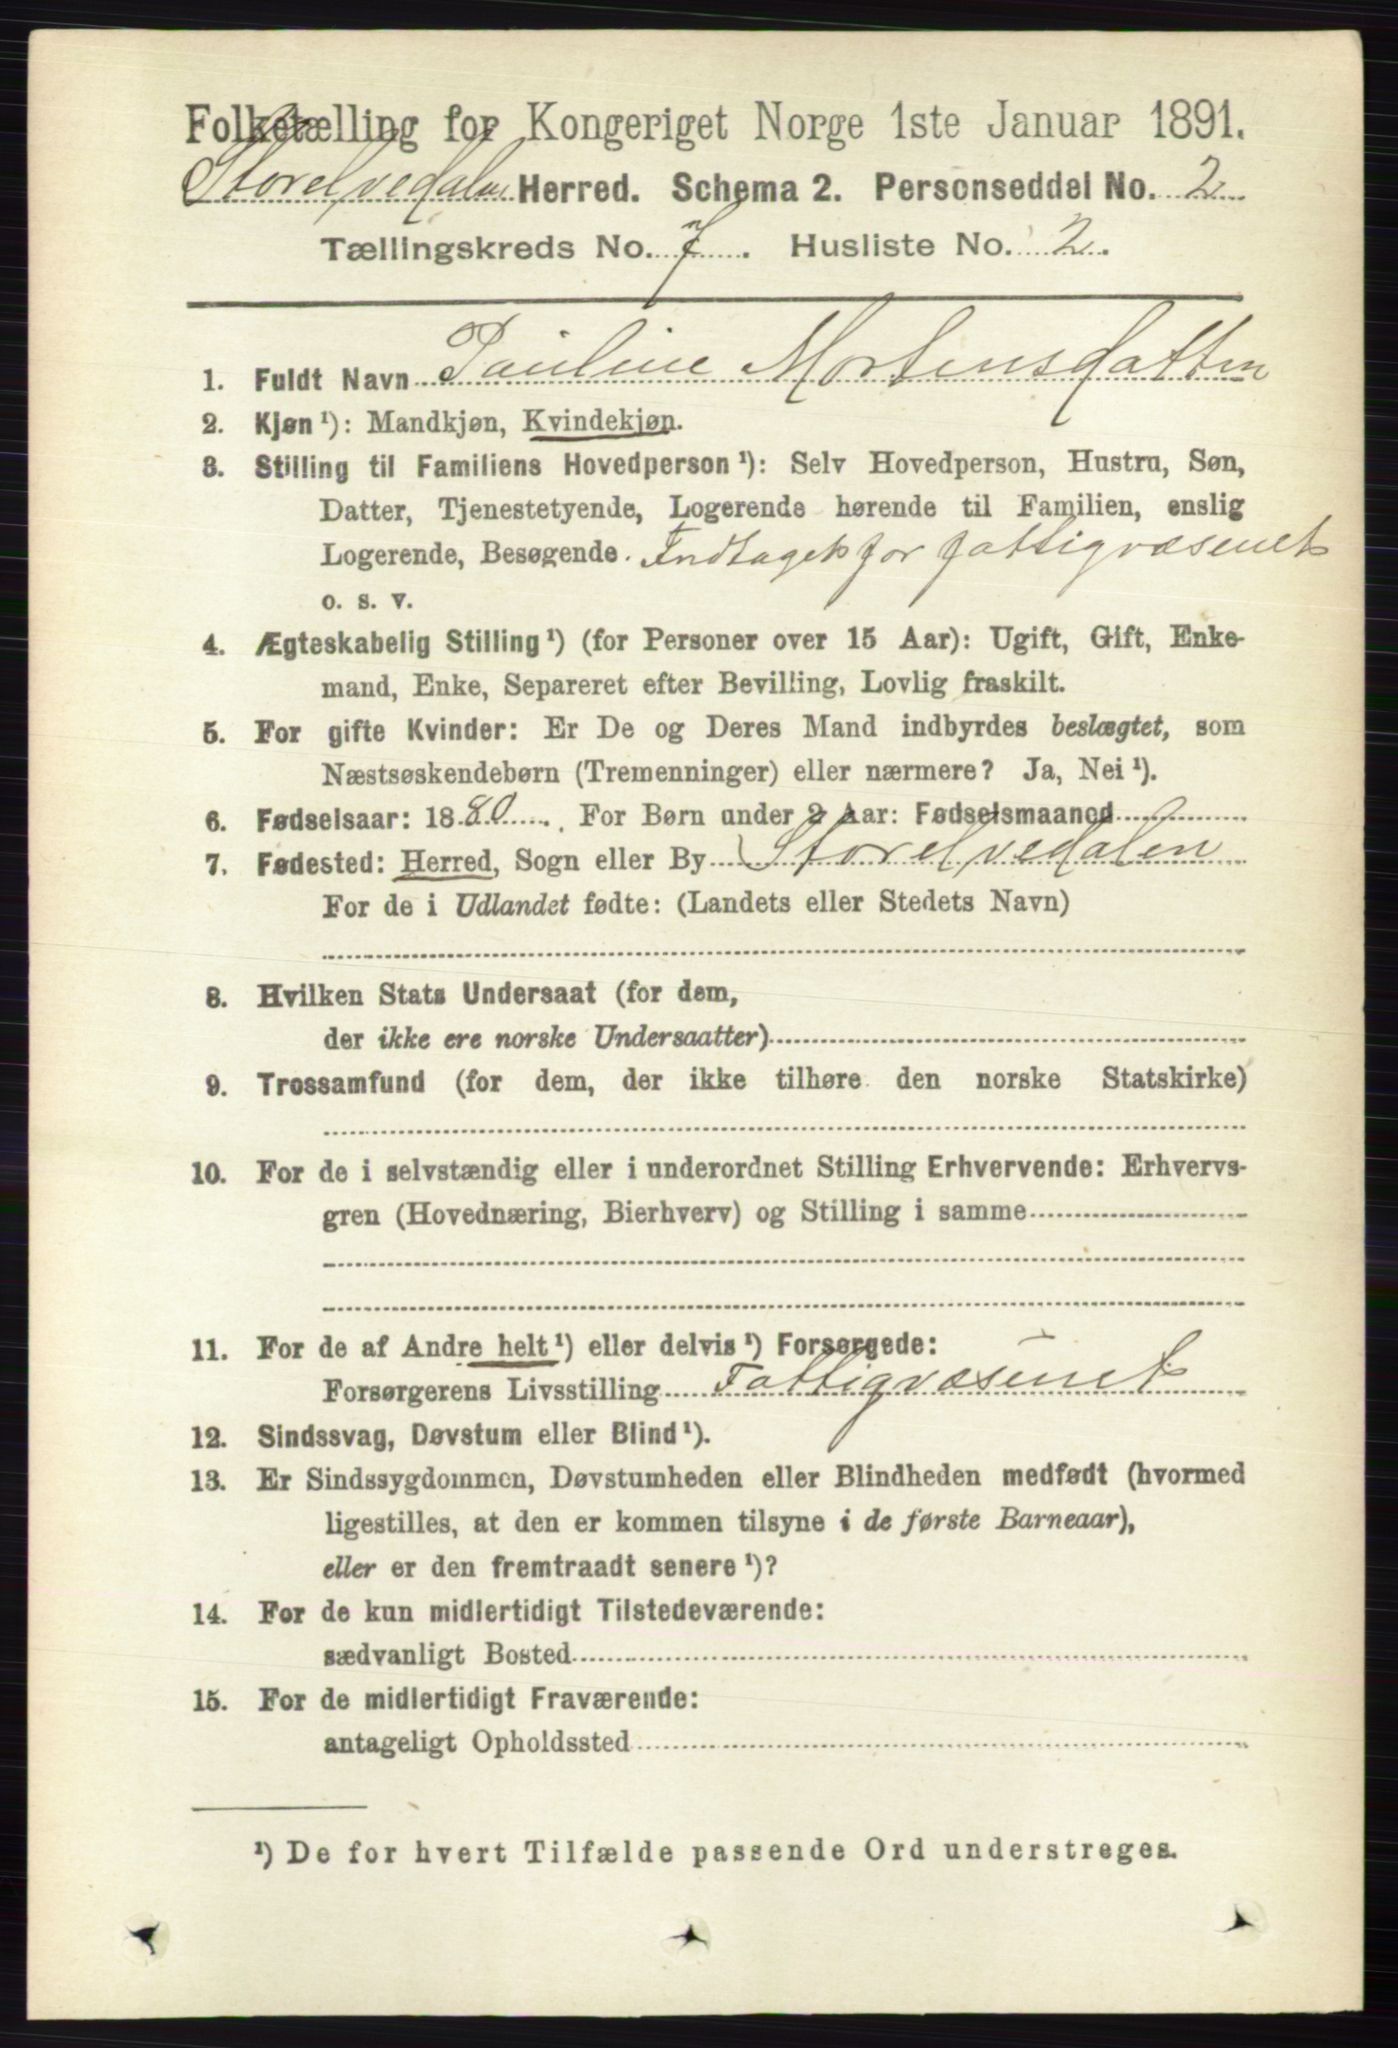 Folketælling for Kongeriget Norge 1ste Januar 1891.
Storelvedalen Herred. Schema 2. Personseddel No. 2
Tællingskreds No. 7. Husliste No. 2.
1. Fuldt Navn Pauline Mortensdatter
2. Kjøn ¹): Mandkjøn, Kvindekjøn.
3. Stilling til Familiens Hovedperson ¹): Selv Hovedperson, Hustru, Søn,
Datter, Tjenestetyende, Logerende hørende til Familien, enslig
Logerende, Besøgende. Indtaget for fattigvæsenet
o. s. v.
4. Ægteskabelig Stilling ¹) (for Personer over 15 Aar): Ugift, Gift, Enke-
mand, Enke, Separeret efter Bevilling, Lovlig fraskilt.
5. For gifte Kvinder: Er De og Deres Mand indbyrdes beslægtet, som
Næstsøskendebørn (Tremenninger) eller nærmere? Ja, Nei ¹).
6. Fødselsaar: 1880. For Børn under 2 Aar: Fødselsmaaned
7. Fødested: Herred, Sogn eller By Storelvedalen
For de i Udlandet fødte: (Landets eller Stedets Navn)
8. Hvilken Stats Undersaat (for dem,
der ikke ere norske Undersaatter)
9. Trossamfund (for dem, der ikke tilhøre den norske Statskirke)
10. For de i selvstændig eller i underordnet Stilling Erhvervende: Erhvervs-
gren (Hovednæring, Bierhverv) og Stilling i samme
11. For de af Andre helt ¹) eller delvis ¹) Forsørgede:
Forsørgerens Livsstilling Fattigvæsenet
12. Sindssvag, Døvstum eller Blind ¹).
13. Er Sindssygdommen, Døvstumheden eller Blindheden medfødt (hvormed
ligestilles, at den er kommen tilsyne i de første Barneaar),
eller er den fremtraadt senere ¹)?
14. For de kun midlertidigt Tilstedeværende:
sædvanligt Bosted
15. For de midlertidigt Fraværende:
antageligt Opholdssted
¹) De for hvert Tilfælde passende Ord understreges.